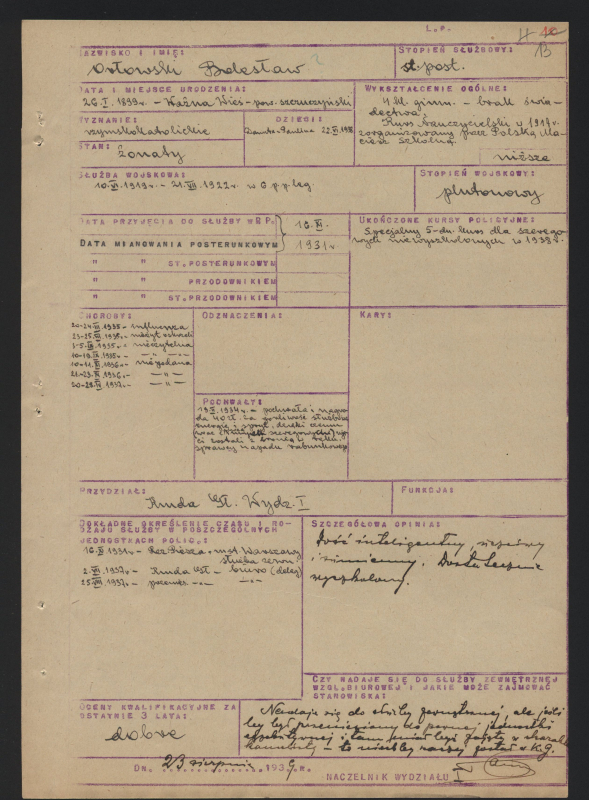 L.p.
13
NAZWISKO I IMIĘ:
Orłowski Bolesław
STOPIEŃ SŁUŻBOWY:
st. post.
DATA I MIEJSCE URODZENIA:
26.I.1899r. - Ważna Wieś - pow. szczuczyński
WYKSZTAŁCENIE OGÓLNE:
4 kl. gimn. - brak świa-
dectwa.
Kurs nauczycielski w 1917r.
zorganizowany przez Polską Ma-
cierz Szkolną.
niższe
WYZNANIE:
rzymskokatolickie
DZIECI:
Danuta-Paulina 22.VI.1938
STAN:
żonaty
SŁUŻBA WOJSKOWA:
10.VI.1919r. - 21.VII.1922r. w 6 p.p. leg.
STOPIEŃ WOJSKOWY:
plutonowy
DATA PRZYJĘCIA DO SŁUŻBY W P.P.
DATA MIANOWANIA POSTERUNKOWYM
16.XI.
1931r
" " ST.POSTERUNKOWYM
" " PRZODOWNIKIEM
" " ST.PRZODOWNIKIEM
UKOŃCZONE KURSY POLICYJNE:
Specjalny 5-dn. kurs dla szerego-
wych niewyszkolonych w 1938r.
CHOROBY:
1935r. - influenza
1935r. - nieżyt oskrzeli
1935r. - nieczytelna
1935r. - " -
1936r. - niepodana
1936r. - " -
1937r. - " -
ODZNACZENIA:
KARY:
POCHWAŁY:
1934r. - pochwała i nagro-
da 40 zł. za gorliwość służbową
energię i spryt, dzięki czemu
ci zostali z bronią w ręku
sprawcy napadu rabunkowego
PRZYDZIAŁ:
Kmda Gł. Wydz. I
FUNKCJA:
DOKŁADNE OKREŚLENIE CZASU I RO-
DZAJU SŁUŻBY W POSZCZEGÓLNYCH
JEDNOSTKACH POLIC.:
16.XI.1931r. - Rez. Piesza - m.st. Warszawy
służba zewn.
2.XI.1937r. - Kmda Gł. - biuro (deleg)
25.VIII.1937r. - przenies. - " -
SZCZEGÓŁOWA OPINIA:
Dość inteligentny,
i sumienny. Dostatecznie
wyszkolony.
CZY NADAJE SIĘ DO SŁUŻBY ZEWNĘTRZNEJ
WZGL.BIUROWEJ I JAKIE MOŻE ZAJMOWAĆ
STANOWISKA:
Nadaje się do służby zewnętrznej, ale jeśli
by był przeniesiony do pewnej jednostki
- to niechby raczej został w K.G.
OCENY KWALIFIKACYJNE ZA
OSTATNIE 3 LATA:
dobre
Dn. 23 sierpnia 1939 r.
NACZELNIK WYDZIAŁU I